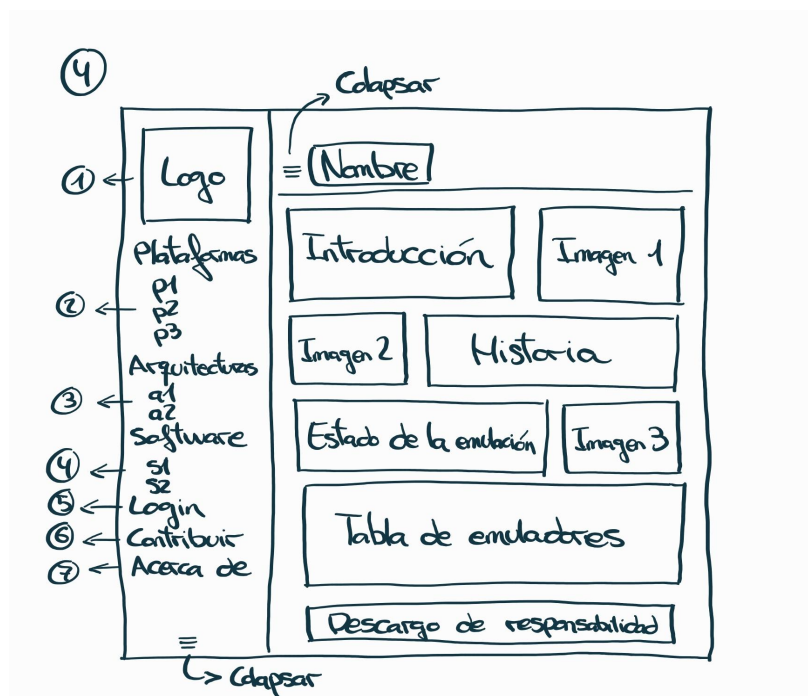 4
Colapsar
1 Logo
Nombre
Plataformas
p1
2 p2
p3
Arquitecturas
3 a1
a2
Software
4 s1
s2
5 Login
6 Contribuir
7 Acerca de
Colapsar
Introducción Imagen 1
Imagen 2 Historia
Estado de la emulación Imagen 3
Tabla de emuladores
Descargo de responsabilidad